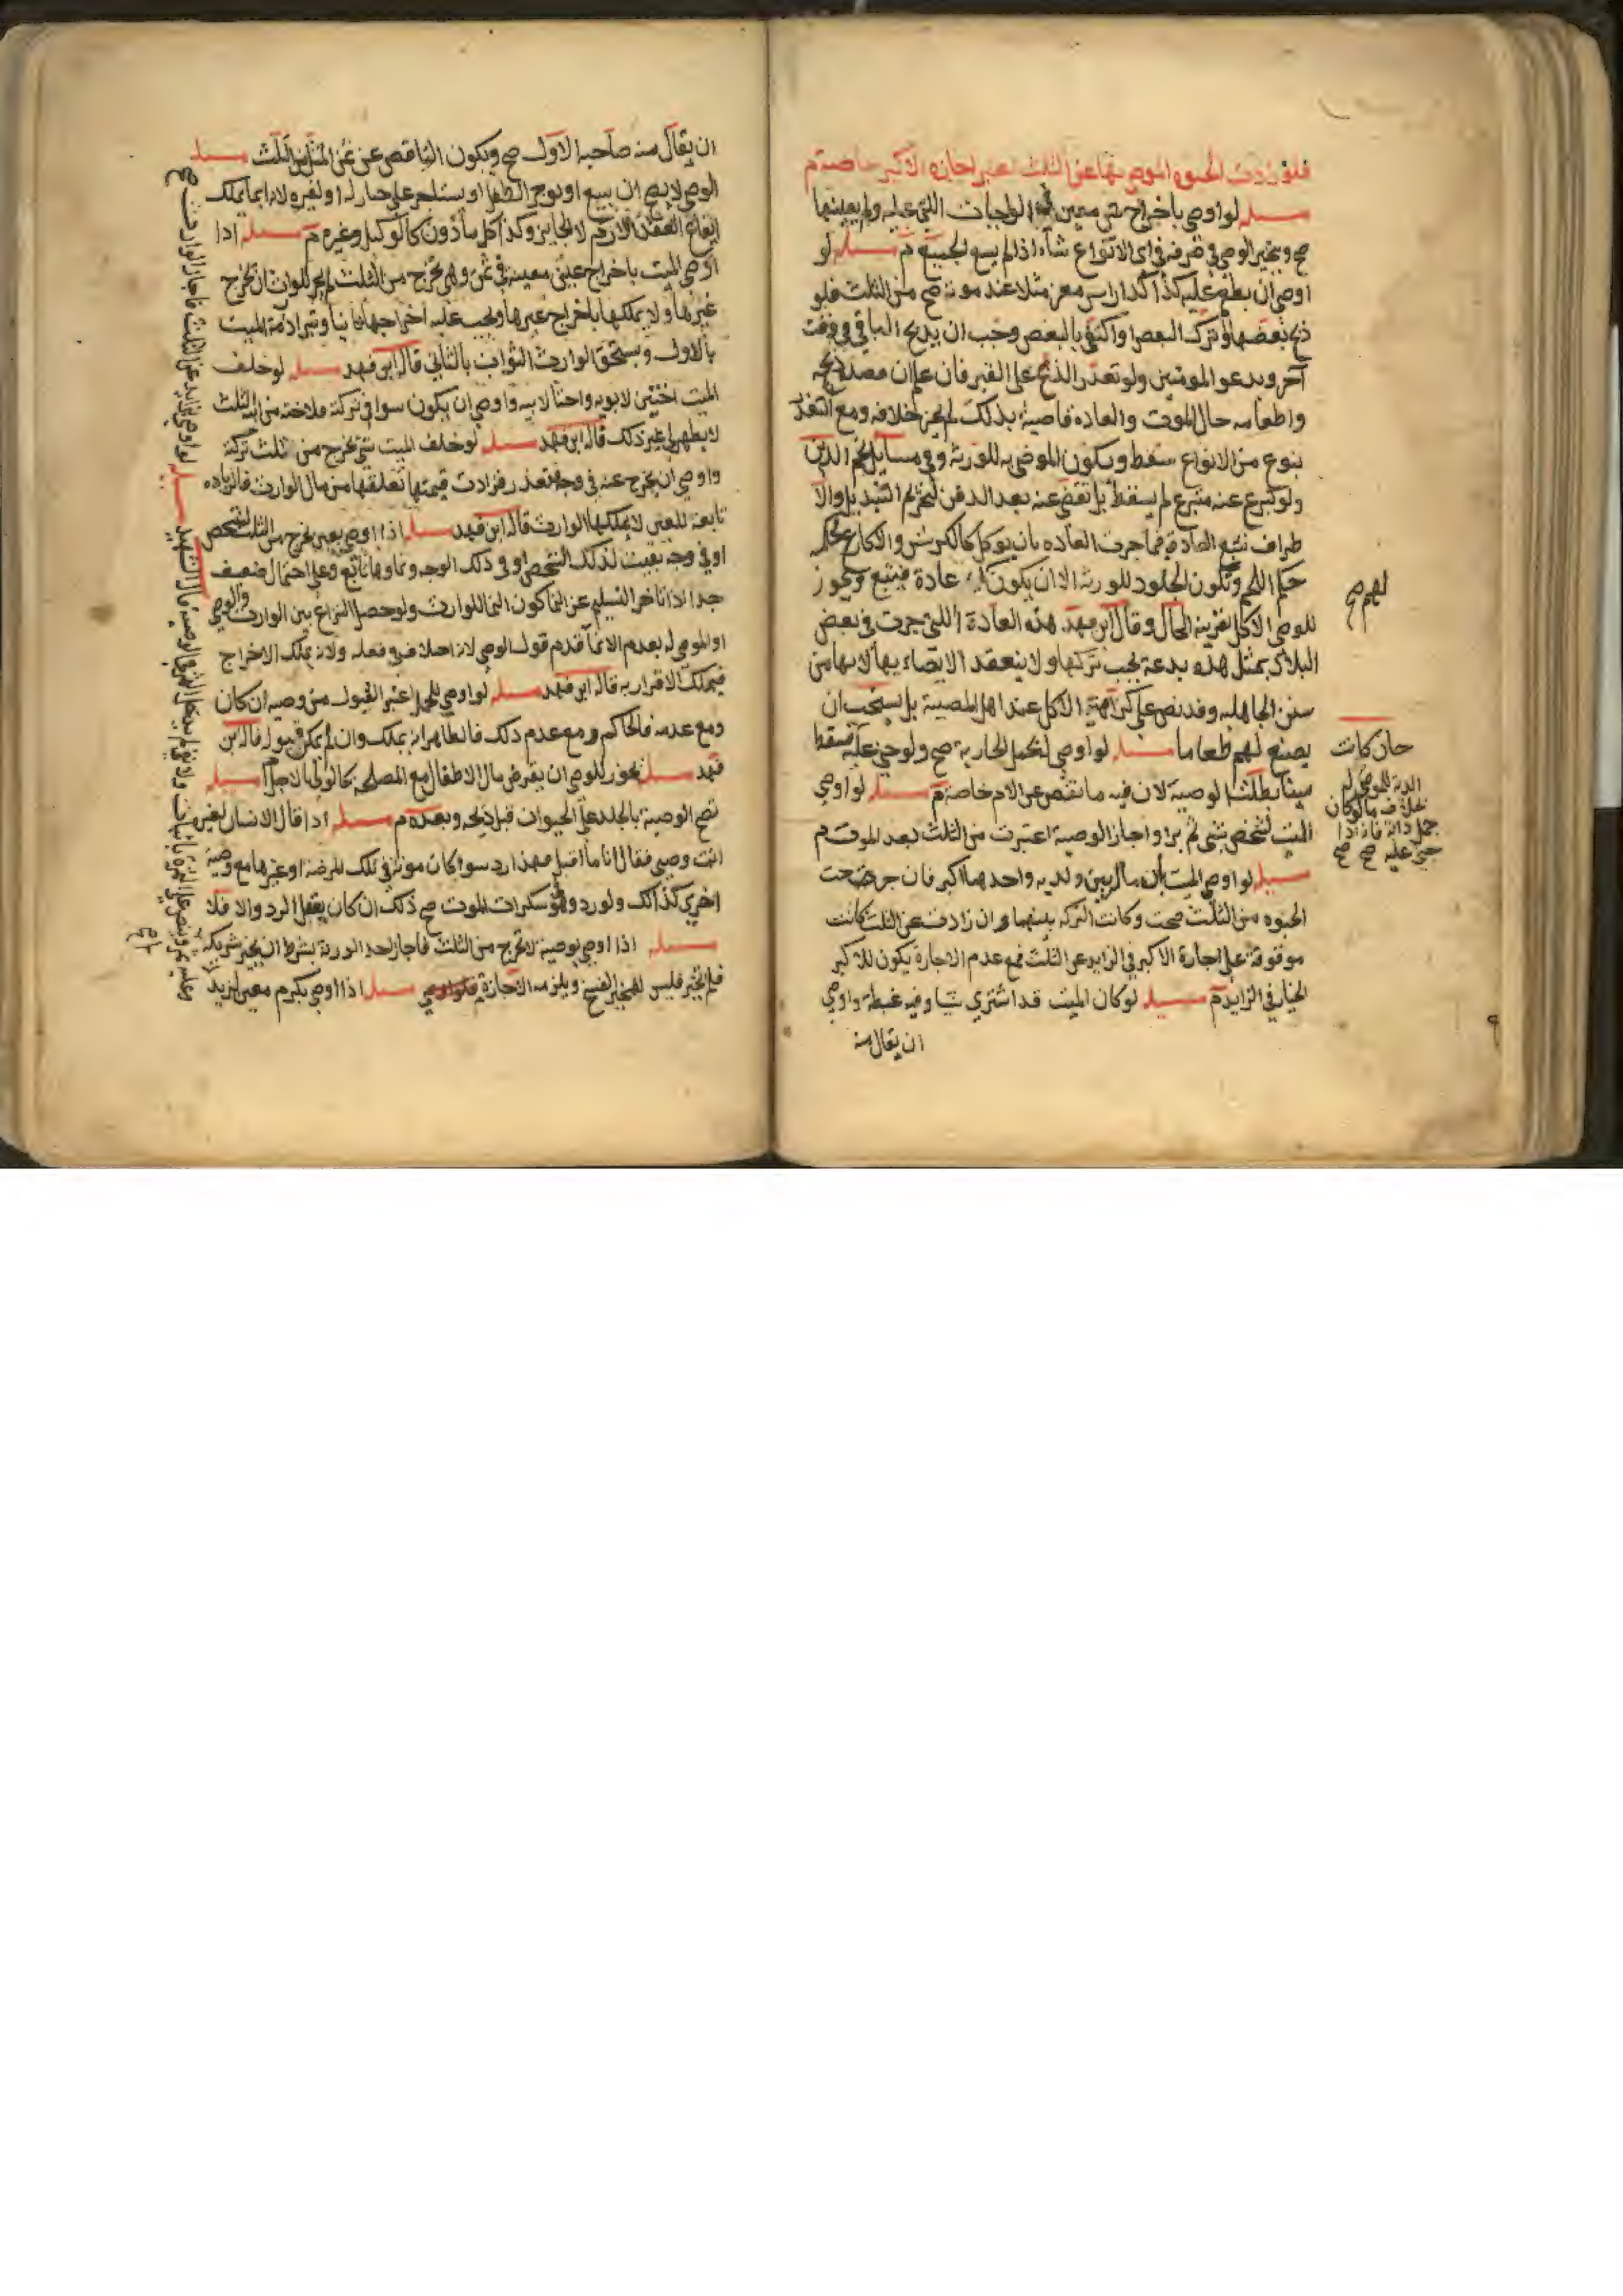 فلو زادت الحبوه الموصى بها عن الثلث اعتبر اجازه الاكبر خاصة م
مسله لو اوصى باخراج شي معين في الواجبات اللتي عليه ولم يعينها
صح ويتخير الوصي في صرفه في اي الانواع شاء اذا لم يسع لجميعه م مسله لو
اوصى ان يطعم عليه كذا كذا راس معز مثلا عند موته صح من الثلث فلو
ذبح بعضها وترك البعض او اكتفى بالبعض وجب ان يذبح الباقي في وقت
آخر ويدعو المومنين ولو تعذر الذبح على القبر فان علم ان قصده ذبحه
واطعامه حال الموت والعاده قاضية بذلك لم يجز خلافه ومع التعذر
بنوع من الانواع سقط ويكون الموصى به للورثه وفي مسايل نجم الدين
ولو تبرع عنه متبرع لم يسقط بل تقضى عنه بعد الدفن لتحريم التبديل والا
طراف تتبع العادة فما جرت العاده بان يوكل كالكرش والاكارع حكمه
حكم اللحم وتكون الجلود للورثه الا ان يكون له عادة فيتبع ويجوز
للوصي الاكل بقرينه الحال وقال ابن فهد هذه العادة اللتي جرت في بعض
البلاد بمثل هذه بدعة يجب تركها ولا ينعقد الايصاء بها لانها من
سنن الجاهليه وقد نص على كراهية الاكل عند اهل المصيبة بل يستحب ان
يصنع لهم طعاما مسله لو اوصى بحمل الجارية صح ولو جني عليه فسقط
ميتا بطلت الوصية لان فيه ما نقص عن الام خاصة م مسله لو اوصى
الميت لشخص بشي ثم برا واجاز الوصية اعتبرت من الثلث بعد الموت م
مسله لو اوصى الميت بان ماله بين ولديه واحدهما اكبر فان خرجت
الحبوه من الثلث صحت وكانت التركه بينهما وان زادت عن الثلث كانت
موقوفة على اجازة الاكبر في الزايد عن الثلث فمع عدم الاجازة يكون للاكبر
الخيار في الزايد م مسله لو كان الميت قد اشترى شيا وفيه غبطة واوصى
ان يقال منه
لهم صح
حان كانت
الدية للموصى له
بخلاف ما لو كان
حمل دابة فانه اذا
جني عليه صح صح
ان يقال منه صاحبه الاول صح ويكون الناقص عن ثمن المثل من الثلث مسله
الوصي لا يصح ان يبيع او يوجر الطفل او يستاجر على خيار له او لغيره لانه انما يملك
ايقاع العقد اللازم لا الجايز وكذا كل ماذون كالوكيل وغيره م مسله اذا
اوصى الميت باخراج عين معينة في شي وهي تخرج من الثلث لم يجز للوارث ان يخرج
غيرها ولا يملكها باخراج غيرها ويجب عليه اخراجها ثانيا وتبرا ذمة الميت
بالاول ويستحق الوارث الثواب بالثاني قاله ابن فهد مسله لو خلف
الميت اختين لابويه واختا لابيه واوصى ان يكون سوا في تركته فلاخته من ابيه الثلث
لا يظهر لي غير ذلك قاله ابن فهد مسله لو خلف الميت شي يخرج من ثلث تركته
واوصى ان يخرج عنه في وجه فتعذر فزادت قيمتها تعلقها من مال الوارث فالزياده
تابعة للعين لا يملكها الوارث قاله ابن فهد مسله اذا اوصى بعين تخرج من الثلث لشخص
او في وجه بقيت لذلك الشخص او في ذلك الوجه ونماوها تابع وعلى احتمال ضعيف
جدا اذا تاخر التسليم عن النما كون النما للوارث ولو حصل النزاع بين الوارث والوصي
او الموصى له بعدم الانما قدم قول الوصي لانه اختلاف في فعله ولانه يملك الاخراج
فيملك الاقرار به قاله ابن فهد مسله لو اوصي للحمل اعتبر القبول من وصيه ان كان
ومع عدمه فالحاكم ومع عدم ذلك فالظاهر انه يملك وان لم يكن قبول قاله ابن
فهد مسله يجوز للوصي ان يقرض مال الاطفال مع المصلحة كالولي الاجل م مسله
تصح الوصية بالجلد على الحيوان قبل ذبحه وبعده م مسله اذا قال الانسان لغيره
انت وصيي فقال انا ما اقبل فهذا رد سوا كان موته في تلك المرضه او غيرها مع وصية
اخرى كذلك ولو رد وهو في سكرات الموت صح ذلك ان كان يعقل الرد والا فلا
مسله اذا اوصى بوصية لا تخرج من الثلث فاجاز احد الورثة بشرط ان يجيز شريكه
فلم يجز فليس للمجيز الفسخ ويلزمه الاجازة مسله اذا اوصى بكرم معين لزيد